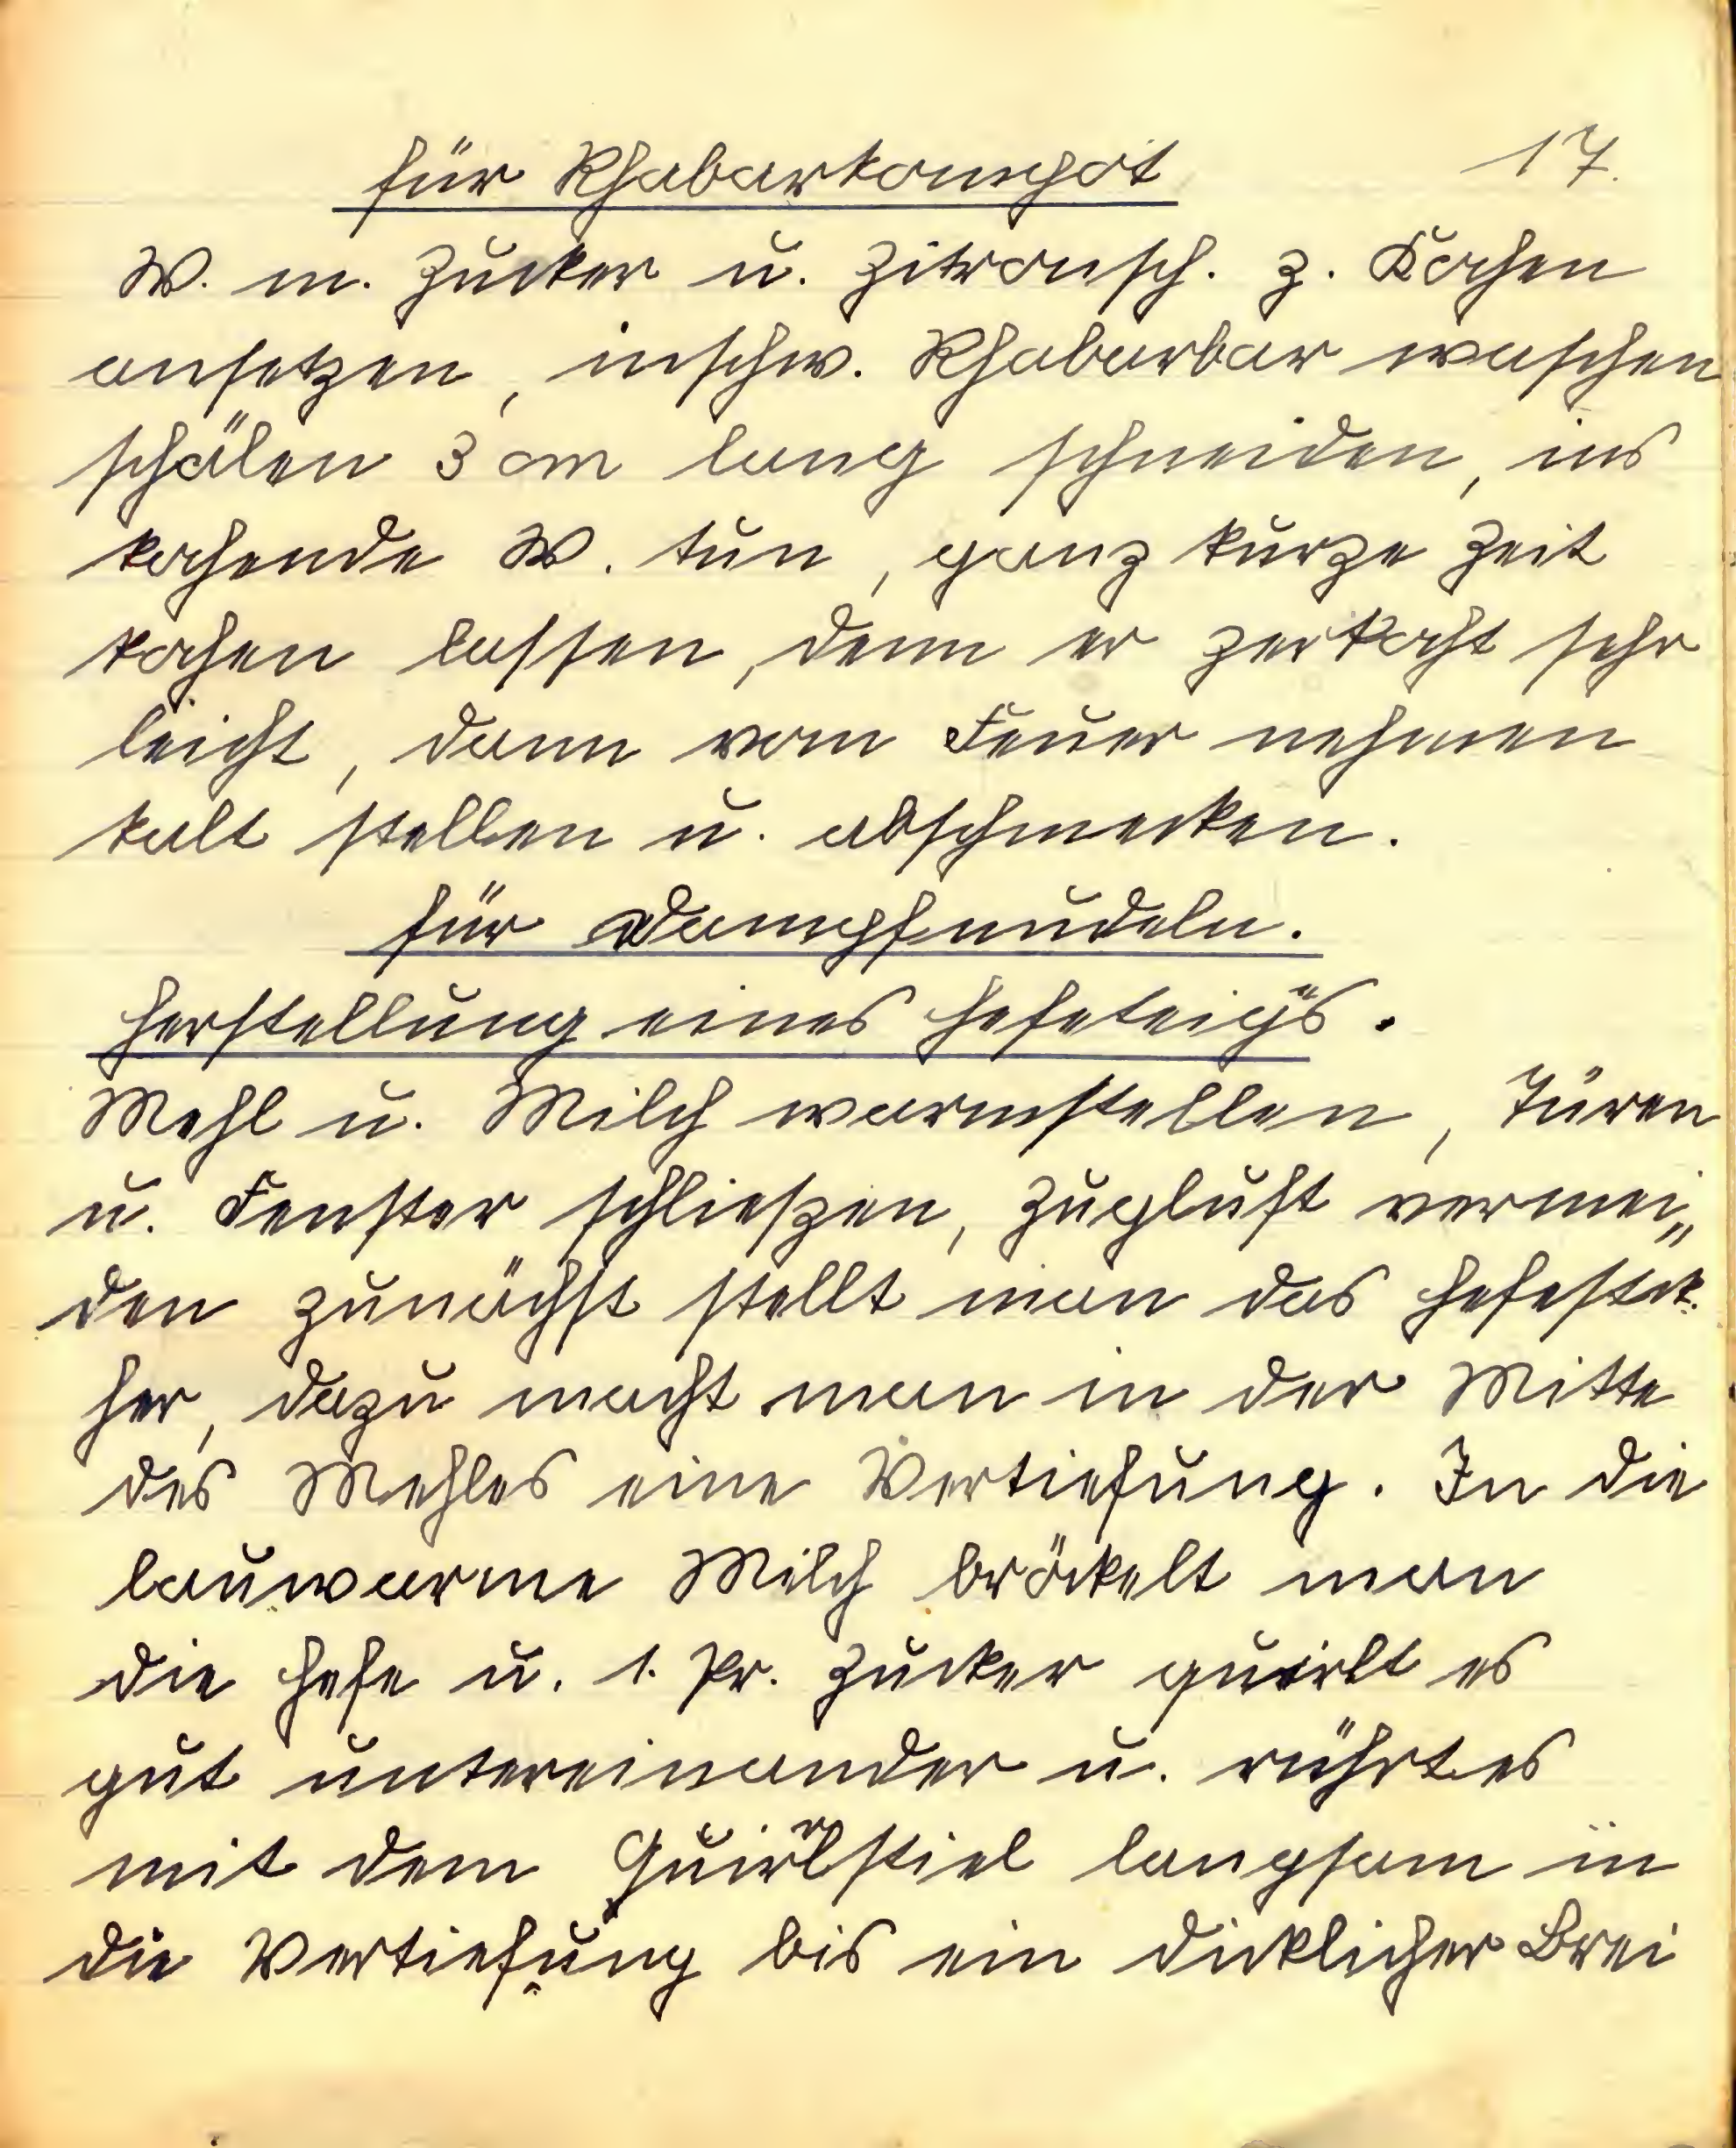 für Rhabarkompot
17.
W. m. Zucker u. Zitronsch. z. Kochen
ansetzen, inschw. Rhabarbar waschen
schälen 3 cm lang schneiden, ins
kochende W. tun, ganz kurze Zeit
kochen lassen, denn er zerkocht sehr
leicht, dann vom Feuer nehmen
kalt stellen u. abschmecken.
für Dampfnudeln.
Herstellung eines Hefeteigs.
Mehl u. Milch warmstellen, Türen
u. Fenster schließen, Zugluft vermei„
den zunächst stellt man das Hefestck.
her, dazu macht man in der Mitte
des Mehles eine Vertiefung. In die
lauwarme Milch bröckelt man
die Hefe u. 1. Pr. Zucker quirlt es
gut untereinander u. rührt es
mit dem Quirlstiel langsam in
die Vertiefung bis ein dicklicher Brei